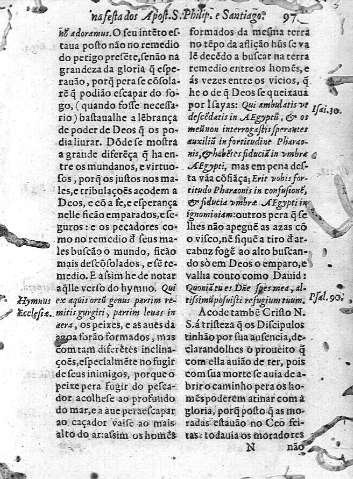 na festa dos Apost. S. Philip. e Santiago. 97
hoc adoramus. O seu intẽto es-
taua posto não no remedio
do perigo presẽte, senão na
grandeza da gloria q̃ espe-
rauão, porq̃ pera se cõsolarẽ
q̃ podião escapar do fo-
go, (quando fosse necessa-
rio) bastaualhe a lẽbrança
de poder de Deos q̃ os po-
dia liurar. Dõde se mostra
a grande diferẽça q̃ ha en-
tre os mundanos, e virtuo-
sos, porq̃ os justos nos ma-
les, e tribulações acodem a
Deos, e cõ a fe, e esperança
nelle ficão emparados, e se-
guros: e os pecadores co-
mo no remedio d̃ seus ma-
les buscão o mundo, ficão
mais descõsolados, e sem re-
medio. E assim he de notar
aq̃lle verso do hymno. Qui
Hymnus
Ecclesiæ.
ex aquis ortũ genus partim re-
mitis gurgiti, partim leuas in
aera, os peixes, e as aues da
agoa forão formados, mas
com tam diferẽtes inclina-
ções, especialmẽte no fugir
de seus inimigos, porque o
peixe pera fugir do pesca-
dor acolhese ao profundo
do mar, e a aue pera escapar
ao caçador vaise ao mais
alto do ar: assim os homẽs
formados da mesma terra
no tẽpo da aflição hũs se va
lẽ decẽdo a buscar na terra
remedio entre os homẽs, e
ás vezes entre os vicios, q̃
he o de q̃ Deos se queixaua
por Isayas: Qui ambulatis vt
Isai. 30.
descẽdatis in AEgyptũ, & os
meũ non interrogastis sperantes
auxiliũ in fortitudine Pharao-
nis, & habẽtes fiduciã in vmbra
AEgypti, mas em pena des-
ta vãa cõfiãça; Erit vobis for-
titudo Pharaonis in confusionẽ,
& fiducia vmbræ AEgypti in
ignominiam: outros pera q̃ se
lhes não apegue as azas cõ
o visco, nẽ fiquẽ a tiro d'ar-
cabuz fogẽ ao alto buscan-
do só em Deos o emparo, e
valha couto como Dauid:
Quoniã tu es Dñe spes mea, al-
tissimũ posuisti refugium tuum.
Psal. 90.
Acode tambẽ Cristo N.
S. á tristeza q̃ os Discipulos
tinhão por sua ausencia, de-
clarandolhes o proueito q̃
com ella auião de ter, pois
com sua morte se auia de a-
brir o caminho pera os ho-
mẽs poderem atinar com a
gloria, porq̃ posto q̃ as mo-
radas estauão no Ceo fei-
tas: todauia os moradores
N não